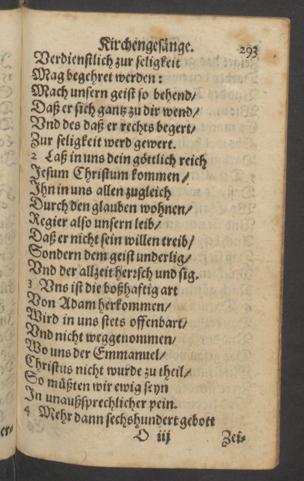 Kirchengesänge. 293
Verdienstlich zur seligkeit
Mag begehret werden:
Mach unsern geist so behend/
Daß er sich gantz zu dir wend/
Vnd des daß er rechts begert/
Zur seligkeit werd gewert.
2 Laß in uns dein göttlich reich
Jesum Christum kommen/
Jhn in uns allen zugleich
Durch den glauben wohnen/
Regier also unsern leib/
Daß er nicht sein willen treib/
Sondern dem geist underlig/
Vnd der allzeit herrsch und sig.
3 Vns ist die boßhaftig art
Von Adam herkommen/
Wird in uns stets offenbart/
Vnd nicht weggenommen/
Wo uns der Emmanuel/
Christus nicht wurde zu theil/
So müßten wir ewig seyn
Jn unaußsprechlicher pein.
4 Mehr dann sechshundert gebott
O iij Zei-
er-